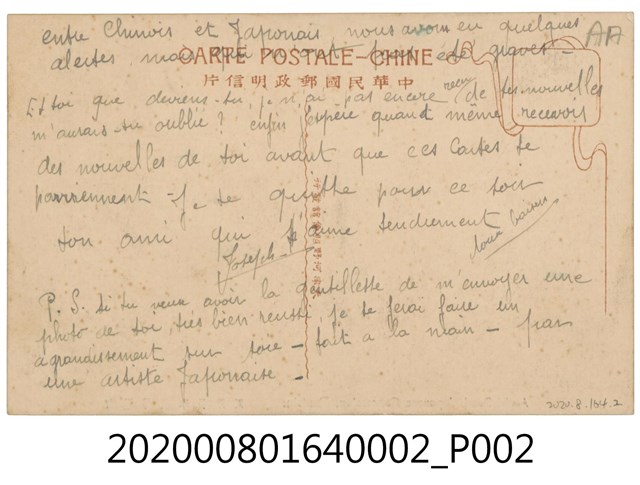 entre Chinois et Japonais nous avons eu quelques
AA
alertes mais qui n'ont pas été graves -
CARTE POSTALE-CHINE
片信明政郵國民華中
Et toi que deviens-tu je n'ai pas encore recu de tes nouvelles
m'aurais-tu oublié? enfin espère quand même recevoir
des nouvelles de toi avant que ces Cartes te
parviennent - Je te quitte pour ce soir
ton ami qui t'aime tendrement
Joseph -
doux baisers
P.S. si tu veux avoir la gentillesse de m'envoyer une
photo de toi, très bien reussi je te ferai faire un
agrandissement sur soie - fait a la main - par
une artiste Japonaise -
2020.8.164.2
202000801640002_P002